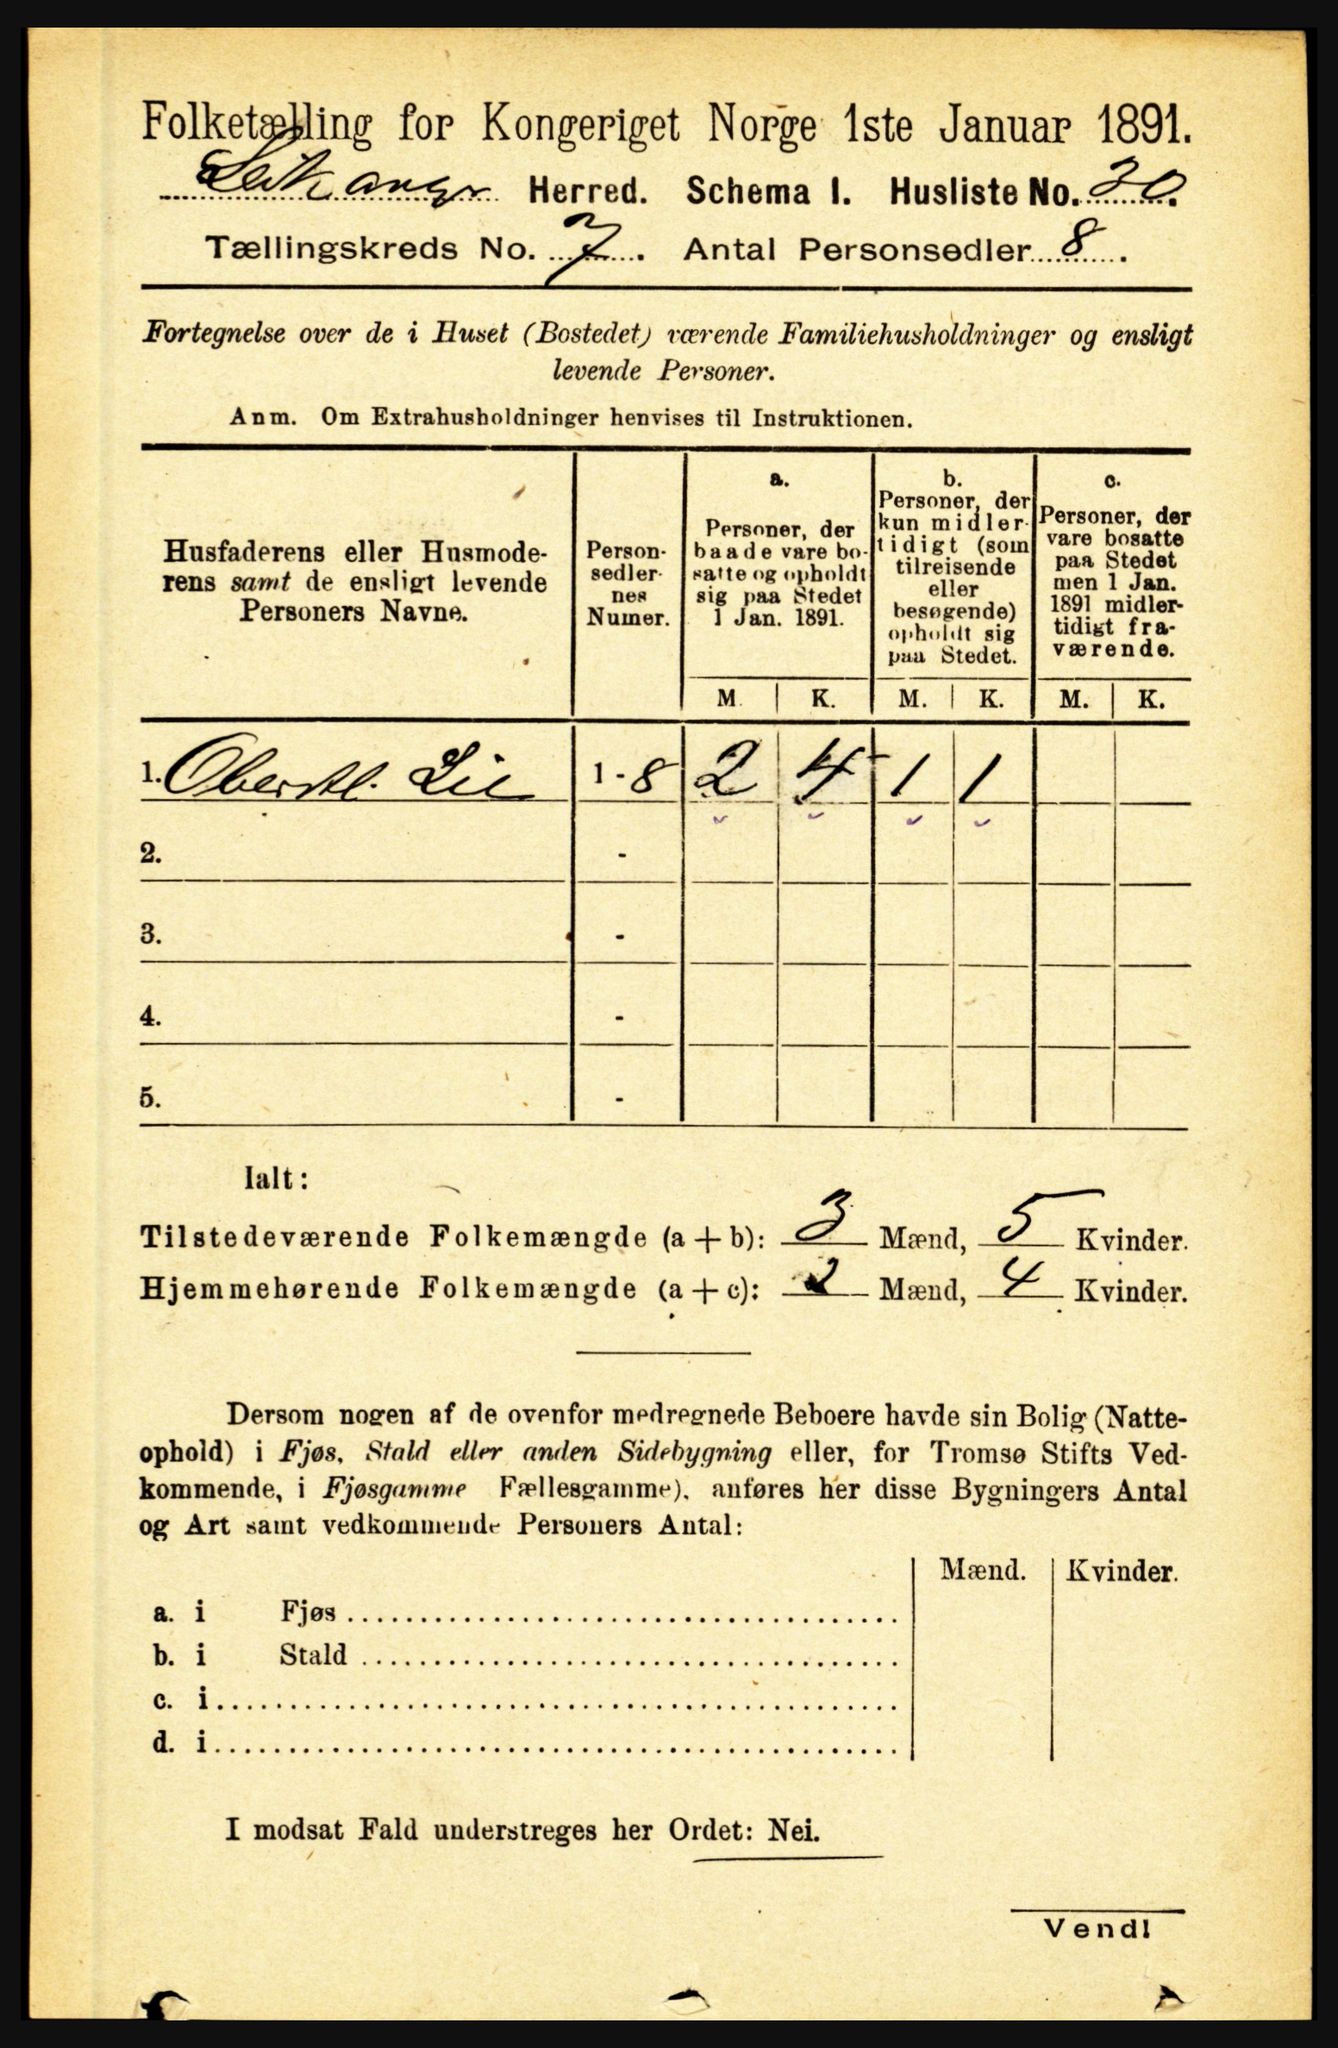 Folketælling for Kongeriget Norge 1ste Januar 1891.
Leikanger Herred. Schema I. Husliste No. 30.
Tællingskreds No. 7. Antal Personsedler 8.
Fortegnelse over de i Huset (Bostedet) værende Familiehusholdninger og ensligt
levende Personer.
Anm. Om Extrahusholdninger henvises til Instruktionen.
Husfaderens eller Husmode-
rens samt de ensligt levende
Personers Navne.
Person-
sedler-
nes
Numer.
a.
Personer, der
baade vare bo-
satte og opholdt
sig paa Stedet
1 Jan. 1891.
b.
Personer, der
kun midler-
tidigt (som
tilreisende
eller
besøgende)
opholdt sig
paa Stedet.
c.
Personer, der
vare bosatte
paa Stedet
men 1 Jan.
1891 midler-
tidigt fra-
værende.
M. K. M. K. M. K.
1. Oberstl. Lie 1-8 2 4 1 1
2. -
3. -
4. -
5. -
Ialt:
Tilstedeværende Folkemængde (a + b): 3 Mænd, 5 Kvinder.
Hjemmehørende Folkemængde (a + c): 2 Mænd, 4 Kvinder.
Dersom nogen af de ovenfor medregnede Beboere havde sin Bolig (Natte-
ophold) i Fjøs, Stald eller anden Sidebygning eller, for Tromsø Stifts Ved-
kommende, i Fjøsgamme Fællesgamme), anføres her disse Bygningers Antal
og Art samt vedkommende Personers Antal:
Mænd. Kvinder.
a. i Fjøs
b. i Stald
c. i
d. i
I modsat Fald understreges her Ordet: Nei.
Vend!